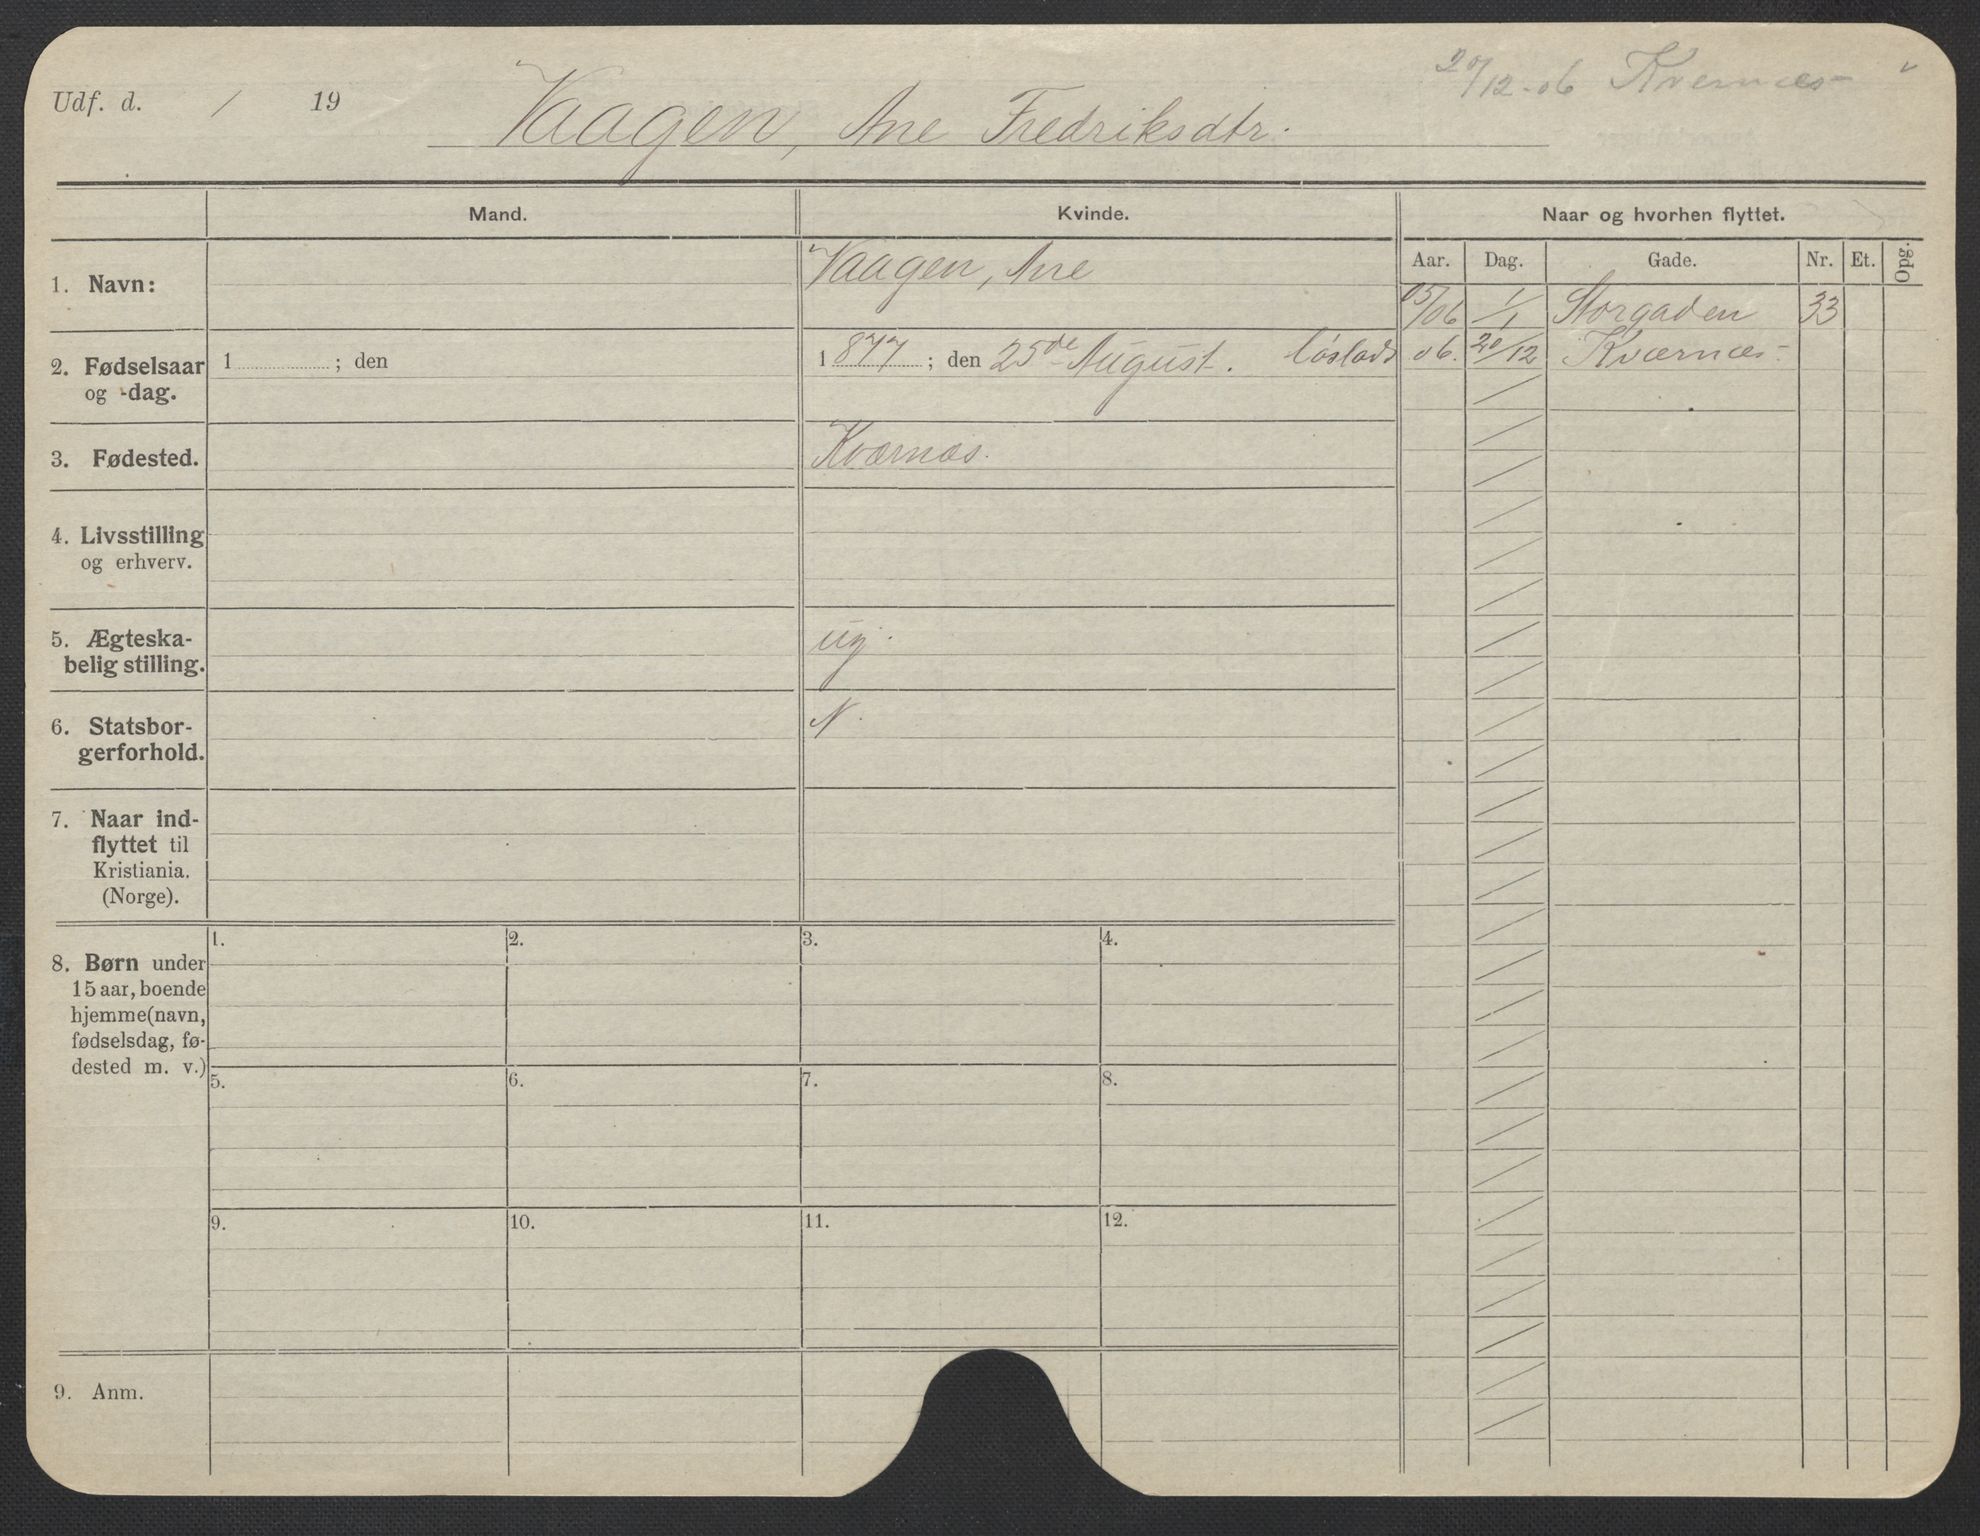 20/12-06 Kvernæs
Udf. d. / 19
Vaagen, Ane Fredriksdtr.
Mand. Kvinde. Naar og hvorhen flyttet.
Aar. Dag. Gade. Nr. Et. Opg.
1. Navn: Vaagen, Ane
05/06 1/1 Storgaden 33
2. Fødselsaar og -dag. 1 ; den
1877; den 25de August.
06. 20/12 Kværnæs.
3. Fødested. Kværnæs.
4. Livsstilling
og erhverv.
5. Ægteska-
belig stilling. ug.
6. Statsbor-
gerforhold. N.
7. Naar ind-
flyttet til
Kristiania.
(Norge).
8. Børn under
15 aar, boende
hjemme (navn,
fødselsdag, fø-
dested m. v.)
1. 2. 3. 4.
5. 6. 7. 8.
9. 10. 11. 12.
9. Anm.